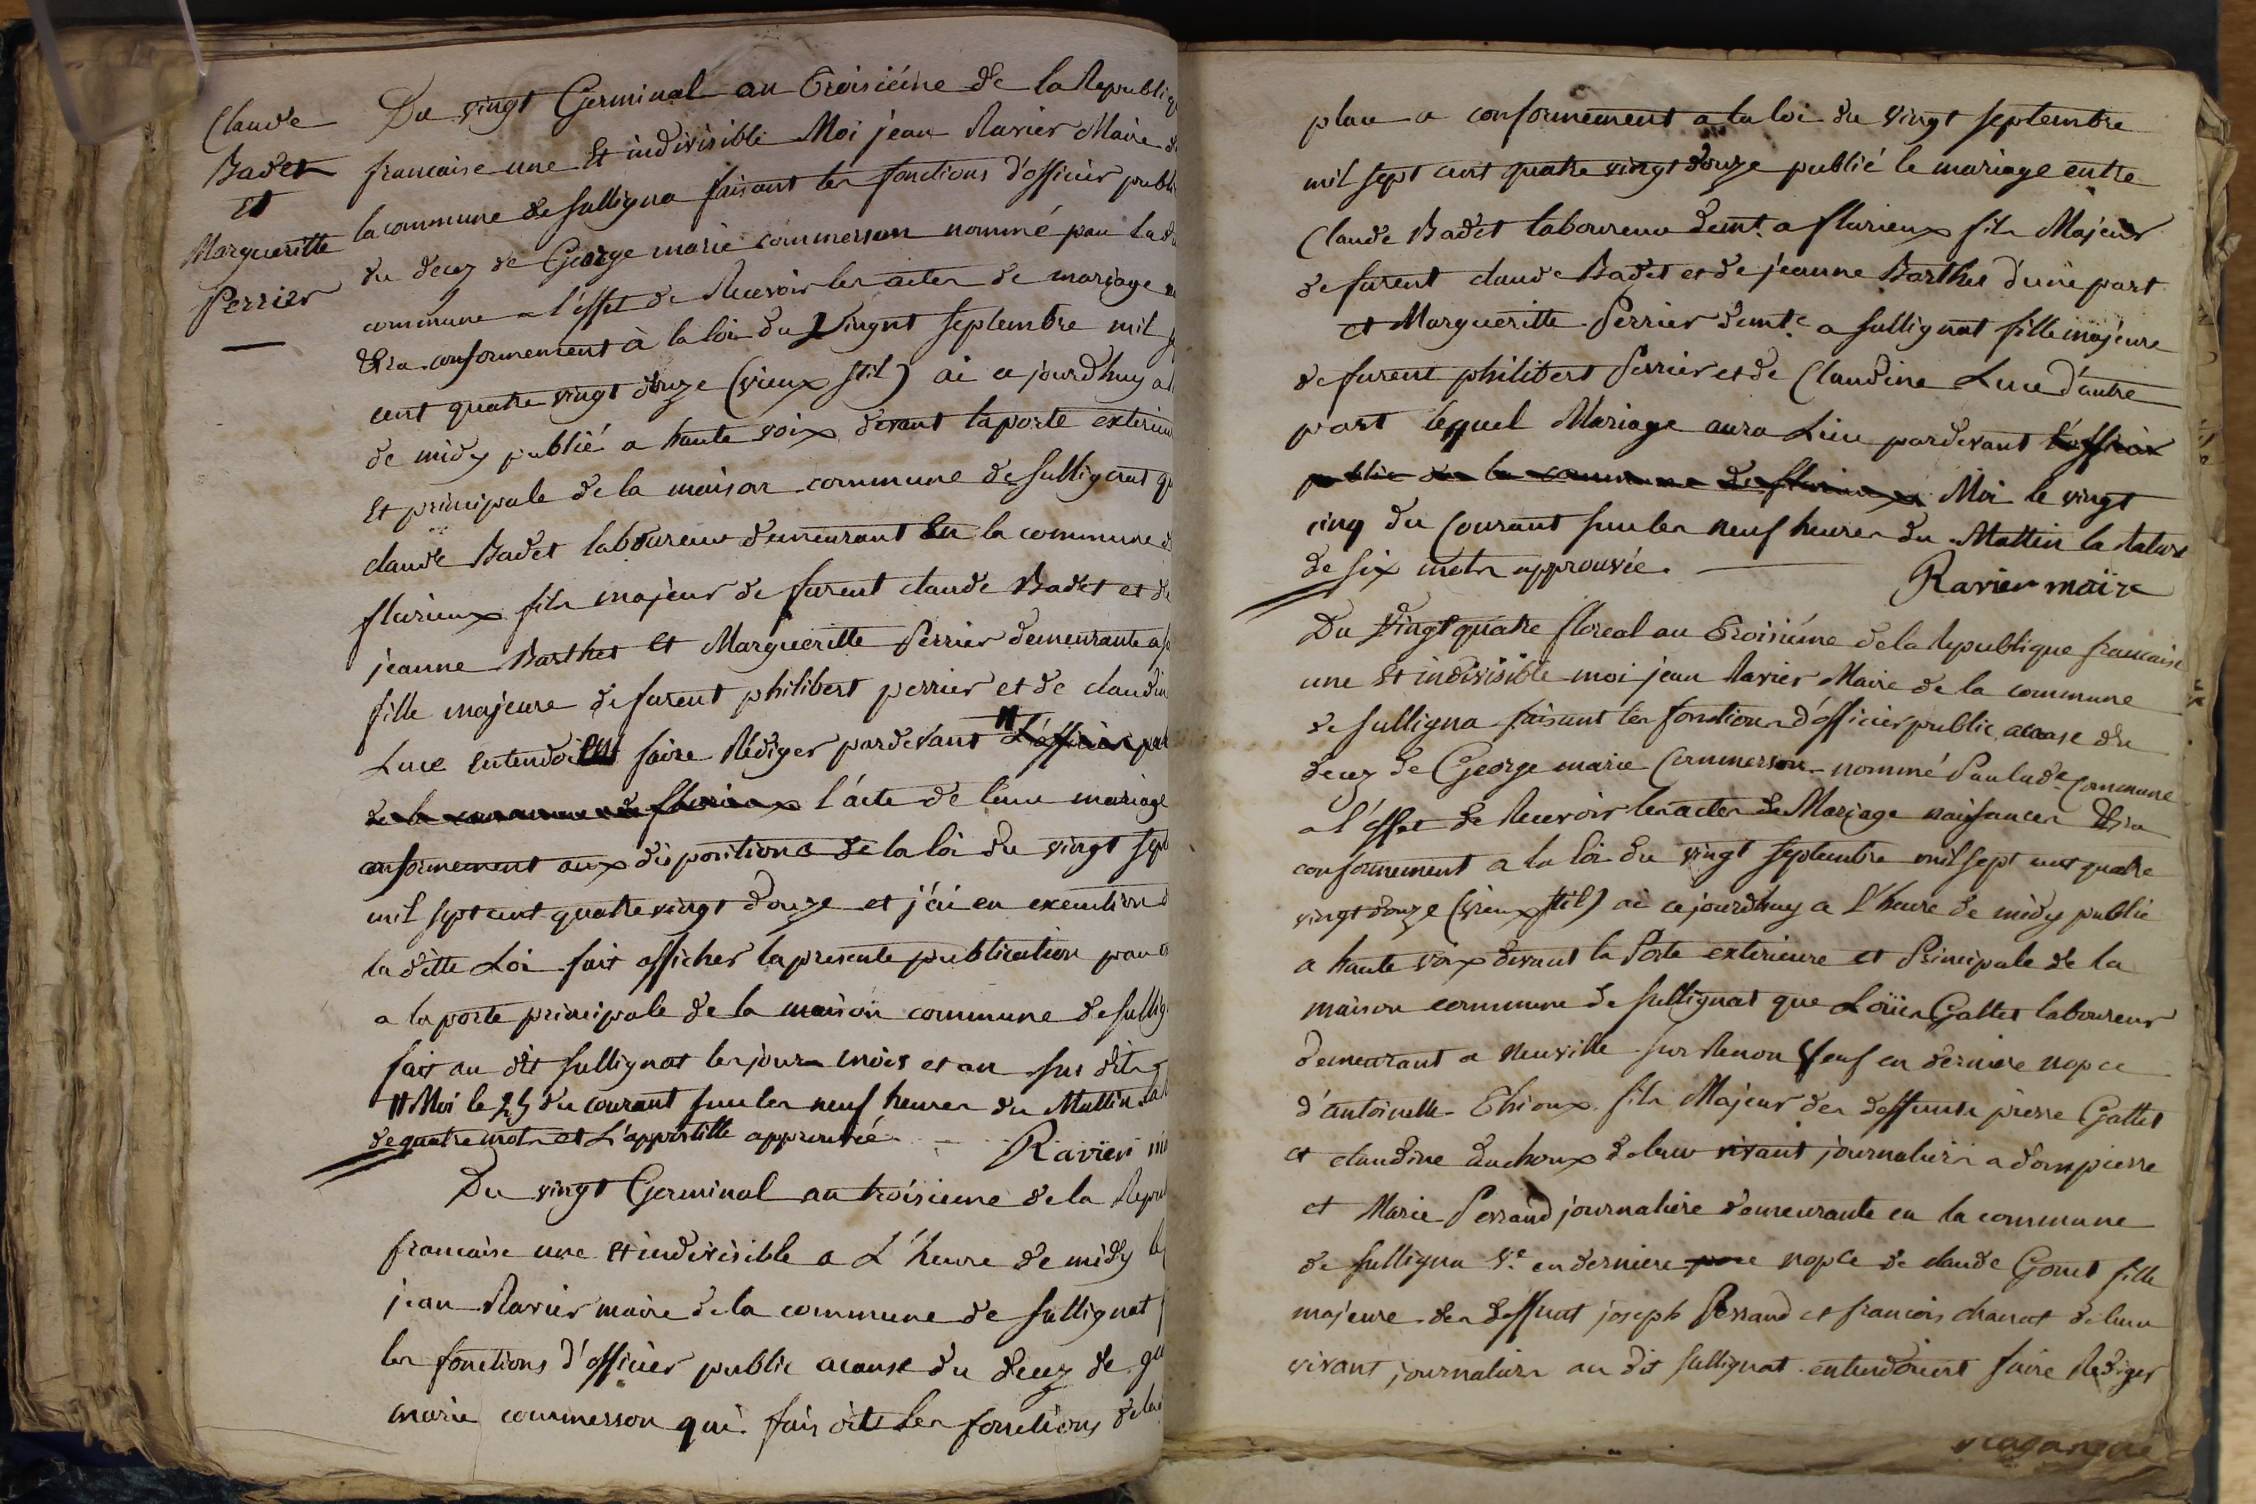 Claude
Badet
Et
Margueritte
Perrier
Du vingt Germinal an Troisiéme de la Republiq
francaise une Et indivisible Moi jean Ravier Maire d
la commune de Sulligna faisant les fonctions d'officier publi
du decez de George marie commerson nommé par lad
commune a l'effet de Recevoir les actes de mariage
conformement à la loi du Vingnt septembre mil
cent quatre vingt douze (vieux stil) ai ajourdhuy a
de midy publié a haute voix devant la porte exterieur
Et principale de la maison commune de Sullignat qu
claude Badet laboureur demeurant En la commune d
flurieux fils majeur de furent claude Badet et de
jeanne Barthet Et Margueritte Perrier demeurante a
fille majeure de furent philibert perrier et de claudin
Luce Entendoient faire Rédiger pardevant # L'officier pu
de la commune de flurieux l'acte de leur mariage
conformement aux dispositions de la loi du vingt sept
mil sept cent quatre vingt douze et j'ai en execution d
la ditte Loi fait afficher la presente publication pour
a la porte principale de la maison commune de Sullig
fait au dit Sullignat les jours mois et an sus dits
# Moi le 25 du courant sur les neuf heures du Mattin la
de quatre mots et L'appostille approuvée. Ravier
Du vingt Germinal an troisieme de la Repu
francaise une et indivisible a L'heure de midy
jean Ravier maire de la commune de Sullignat
les fonctions d'officier public a cause du decez de
marie commerson qui fais oit les fonctions
place a conformement a la loi du vingt septembre
mil sept cent quatre vingt douze publié le mariage entre
Claude Badet laboureur demt. a flurieux fils Majeur
de furent claude Badet et de jeanne Barthet d'une part
et Margueritte Perrier demte a Sullignat fille majeure
de furent philibert Perrier et de Claudine Luce d'autre
part lequel Mariage aura Lieu pardevant l'officier
public de la commune de flurieux Moi le vingt
cinq du Courant sur les neuf heures du Mattin la Rature
de six mots approuvée.
Ravier maire
Du Vingt quatre floreal an Troisiéme de la Republique francaise
une Et indivisible moi jean Ravier Maire de la commune
de Sulligna faisant les fonctions d'officier public, acause du
decez de George marie Commerson nommé Par lade Commune
a l'effet de Recevoir les actes de Mariage naissances
conformement a la loi du vingt septembre mil sept cent quatre
vingt douze (vieux stil) ai cejourdhuy a l'heure de midy publié
a haute voix devant la Porte exterieure et Principale de la
maison commune de Sullignat que Loüis Gallet laboureur
demeurant a neuville sur Renon Veuf en derniere nopce
d'antoinette Thioux fils Majeur des deffunts pierre Gallet
et claudine duchoux de leur vivant journaliers a dompierre
et Marie Perrand journaliere demeurante en la commune
de Sulligna Ve en derniere nopce de claude Gonet fille
majeure des deffunt joseph Perrand et francois chanat de leur
vivant journaliers au dit Sullignat entendoient faire Rediger